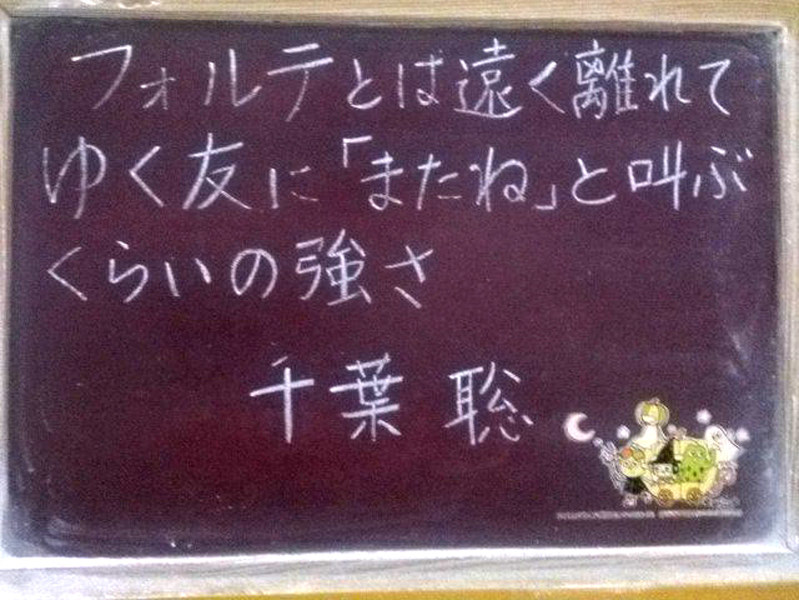 フォルテとは遠く離れて
ゆく友に「またね」と叫ぶ
くらいの強さ
千葉 聡